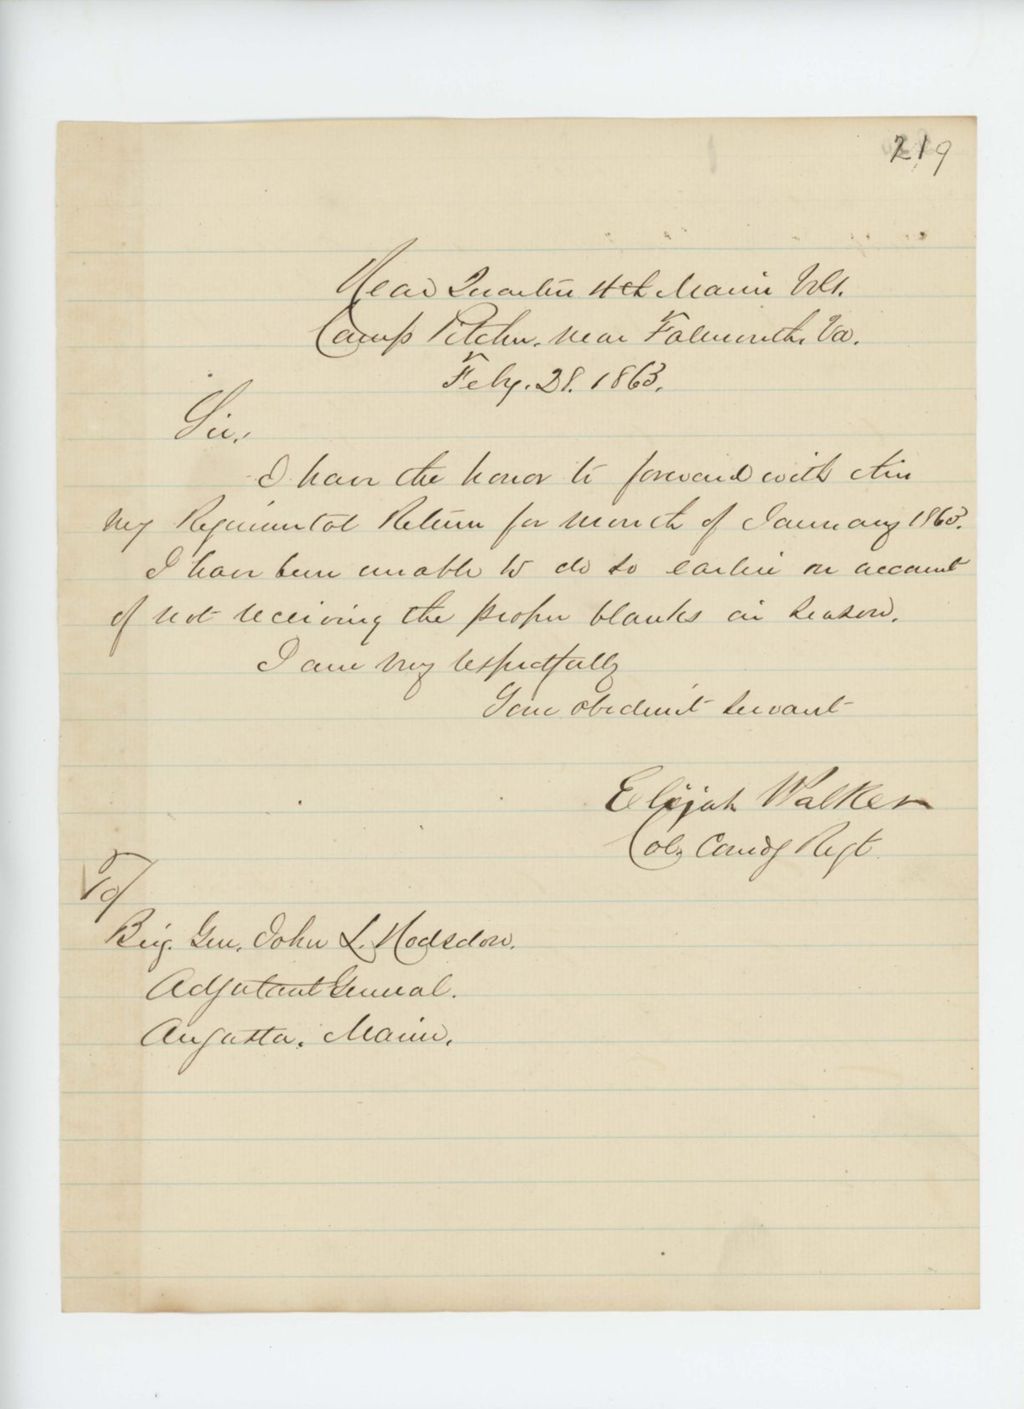 219
Head Quarters 4th Maine Vols.
Camp Pitcher. near Falmouth, Va.
Feby. 28. 1863.
Sir,
I have the honor to forward with this
my Regimental Return for month of January 1863.
I have been unable to do so earlier on account
of not receiving the proper blanks in season.
I am very respectfully
Your obedient servant
Elijah Walker
Col. Comdg Regt.
To
Brig. Gen. John L. Hodsdon.
Adjutant General.
Augusta. Maine.